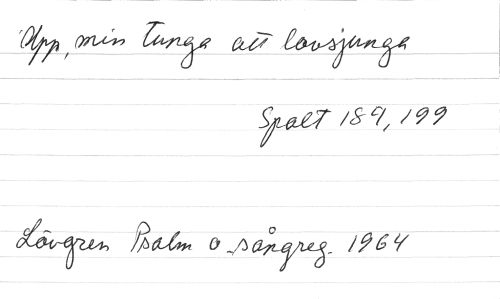 Upp, min tunga att lovsjunga
Spalt 189, 199
Lövgren Psalm o. sångreg. 1964